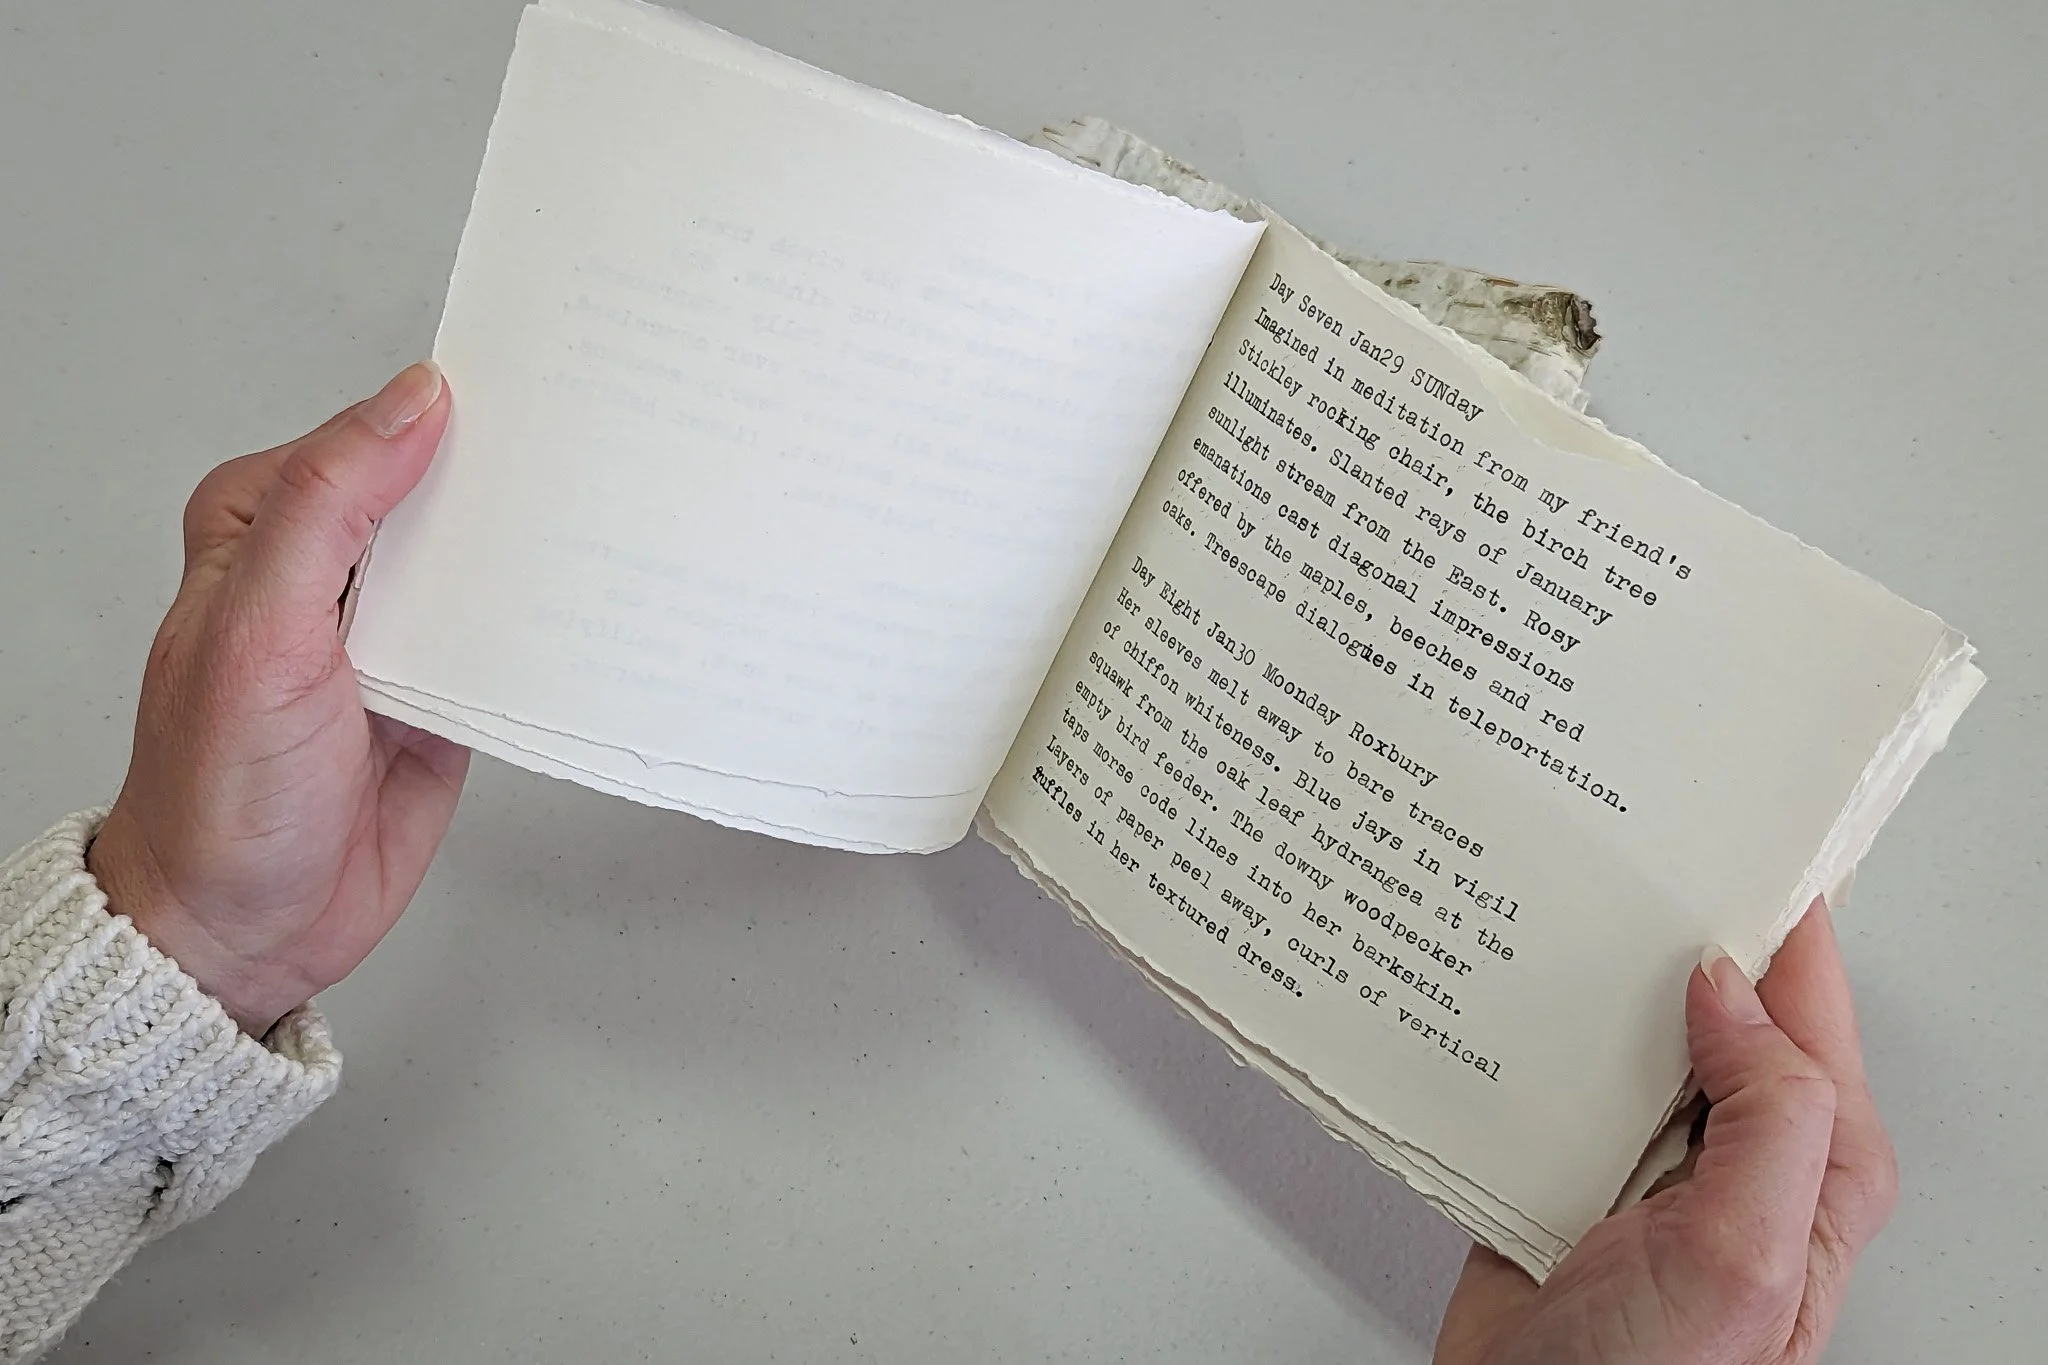 Day Seven Jan29 SUNday
Imagined in meditation from my friend's
Stickley rocking chair, the birch tree
illuminates. Slanted rays of January
sunlight stream from the East. Rosy
emanations cast diagonal impressions
offered by the maples, beeches and red
oaks. Treescape dialogues in teleportation.
Day Eight Jan30 Moonday Roxbury
Her sleeves melt away to bare traces
of chiffon whiteness. Blue jays in vigil
squawk from the oak leaf hydrangea at the
empty bird feeder. The downy woodpecker
taps morse code lines into her barkskin.
Layers of paper peel away, curls of vertical
ruffles in her textured dress.